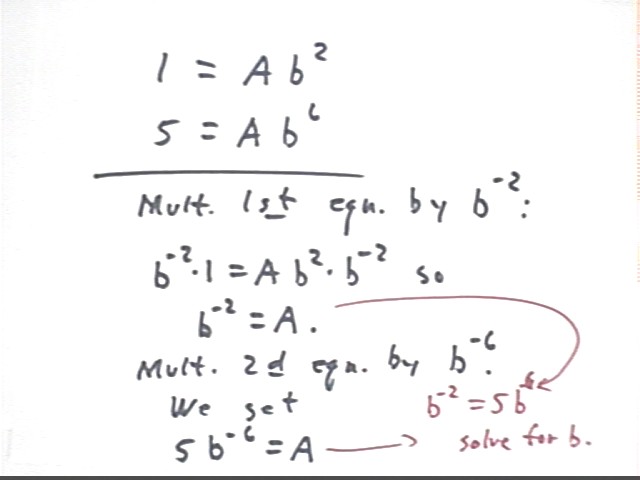 1 = A b²
5 = A b⁶
Mult. 1st eqn. by b⁻²:
b⁻²·1 = A b²·b⁻² so
b⁻² = A.
Mult. 2d eqn. by b⁻⁶.
We get
b⁻² = 5b⁻⁶
5 b⁻⁶ = A → solve for b.